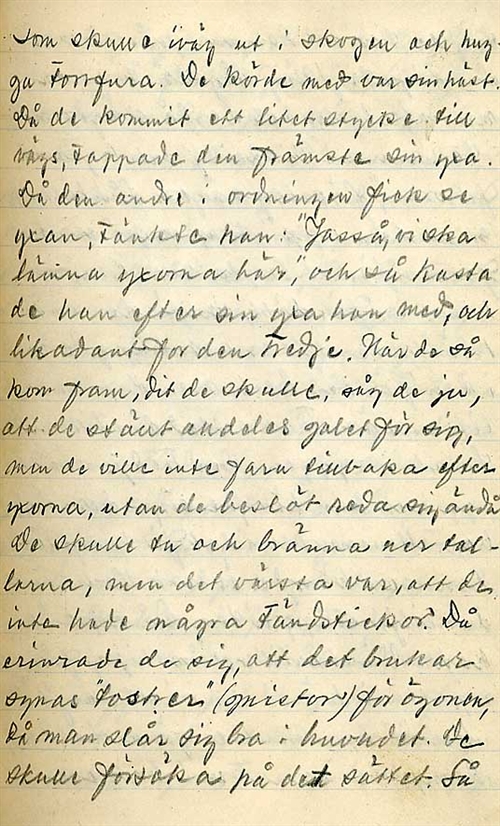 som skulle iväg ut i skogen och hug-
ga Torrfura. De körde med var sin häst.
Då de kommit ett litet stycke till
vägs, tappade den främste sin yxa.
Då den andre i ordningen fick se
yxan, tänkte han: "Jasså, vi ska
lämna yxorna här", och så kasta
de han efter sin yxa han med, och
likadant for den tredje. När de så
kom fram, dit de skulle, såg de ju,
att de stänt andeles galet för sig,
men de ville inte fara tillbaka efter
yxorna, utan de beslöt reda sig ändå
De skulle ta och bränna ner tal-
larna, men det värsta var, att de
inte hade några Tändstickor. Då
erinrade de sig, att det brukar
synas "tostrer" (gnistor) för ögonen,
då man slår sig bra i huvudet. De
skulle försöka på det sättet. Så